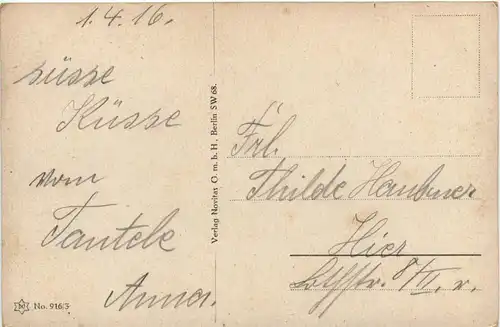 1.4.16.
süsse
Küsse
vom
Tantele
Anna.
Verlag Novitas G. m. b. H., Berlin SW 68.
No. 916/3
Frl.
Thilde Haubner
Hier
8/II. r.